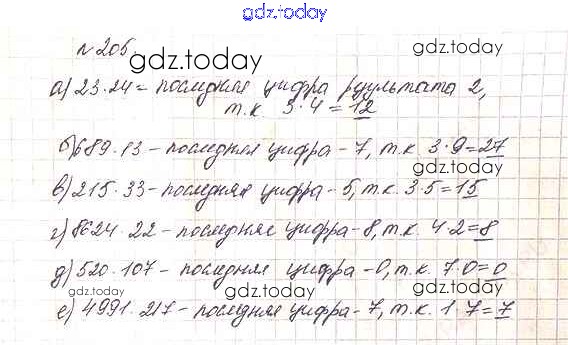 gdz.today
№ 205.
gdz.today
gdz.today
а) 23·24 = последняя цифра результата 2,
т.к 3·4=12
б) 689·13 - последняя цифра - 7, т.к 3·9=27
gdz.today
gdz.today
в) 215·33 - последняя цифра - 5, т.к. 3·5=15
г) 8624·22 - последняя цифра - 8, т.к. 4·2=8
д) 520·107 - последняя цифра - 0, т.к. 7·0=0
gdz.today
gdz.today
е) 4991·217 - последняя цифра - 7, т.к. 1·7=7